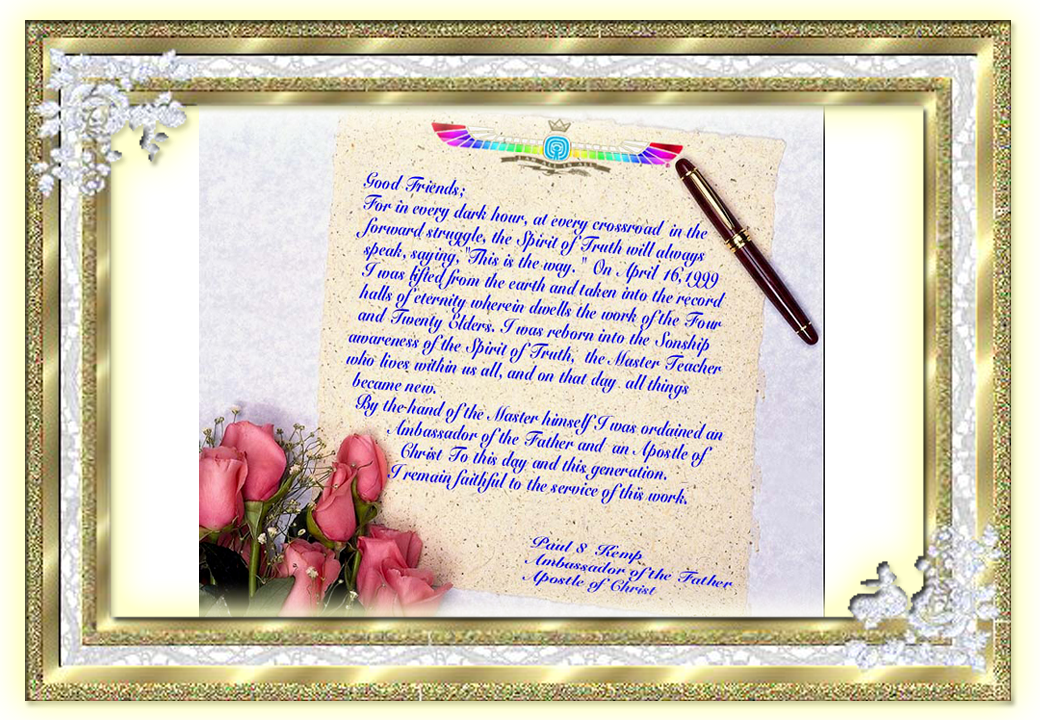 I AM ALL IN ALL
Good Friends;
For in every dark hour, at every crossroad in the
forward struggle, the Spirit of Truth will always
speak, saying, "This is the way. " On April 16,1999
I was lifted from the earth and taken into the record
halls of eternity wherein dwells the work of the Four
and Twenty Elders. I was reborn into the Sonship
awareness of the Spirit of Truth, the Master Teacher
who lives within us all, and on that day all things
became new.
By the hand of the Master himself I was ordained an
Ambassador of the Father and an Apostle of
Christ To this day and this generation.
I remain faithful to the service of this work.
Paul S Kemp
Ambassador of the Father
Apostle of Christ